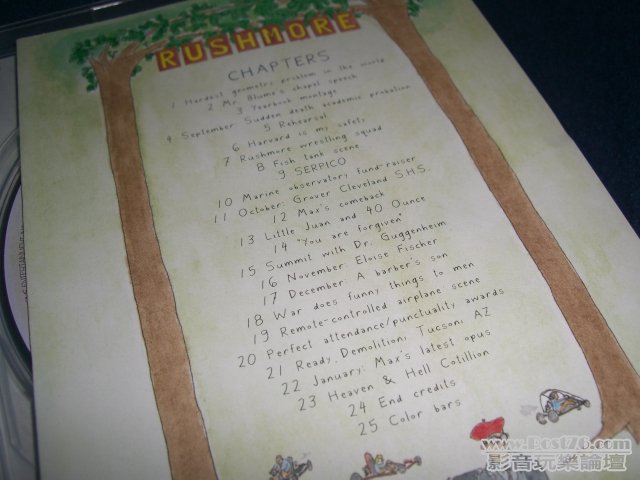 RUSHMORE
CHAPTERS
1 Hardest geometry problem in the world
2 Mr. Blume's chapel speech
3 Yearbook montage
4 September: Sudden death academic probation
5 Rehearsal
6 Harvard is my safety
7 Rushmore wrestling squad
8 Fish tank scene
9 SERPICO
10 Marine observatory fund-raiser
11 October: Grover Cleveland S.H.S.
12 Max's comeback
13 Little Juan and 40 Ounce
14 "You are forgiven"
15 Summit with Dr. Guggenheim
16 November: Eloise Fischer
17 December: A barber's son
18 War does funny things to men
19 Remote-controlled airplane scene
20 Perfect attendance/punctuality awards
21 Ready, Demolition; Tucson; AZ
22 January: Max's latest opus
23 Heaven & Hell Cotillion
24 End credits
25 Color bars
www.Post76.com
影音玩樂論壇